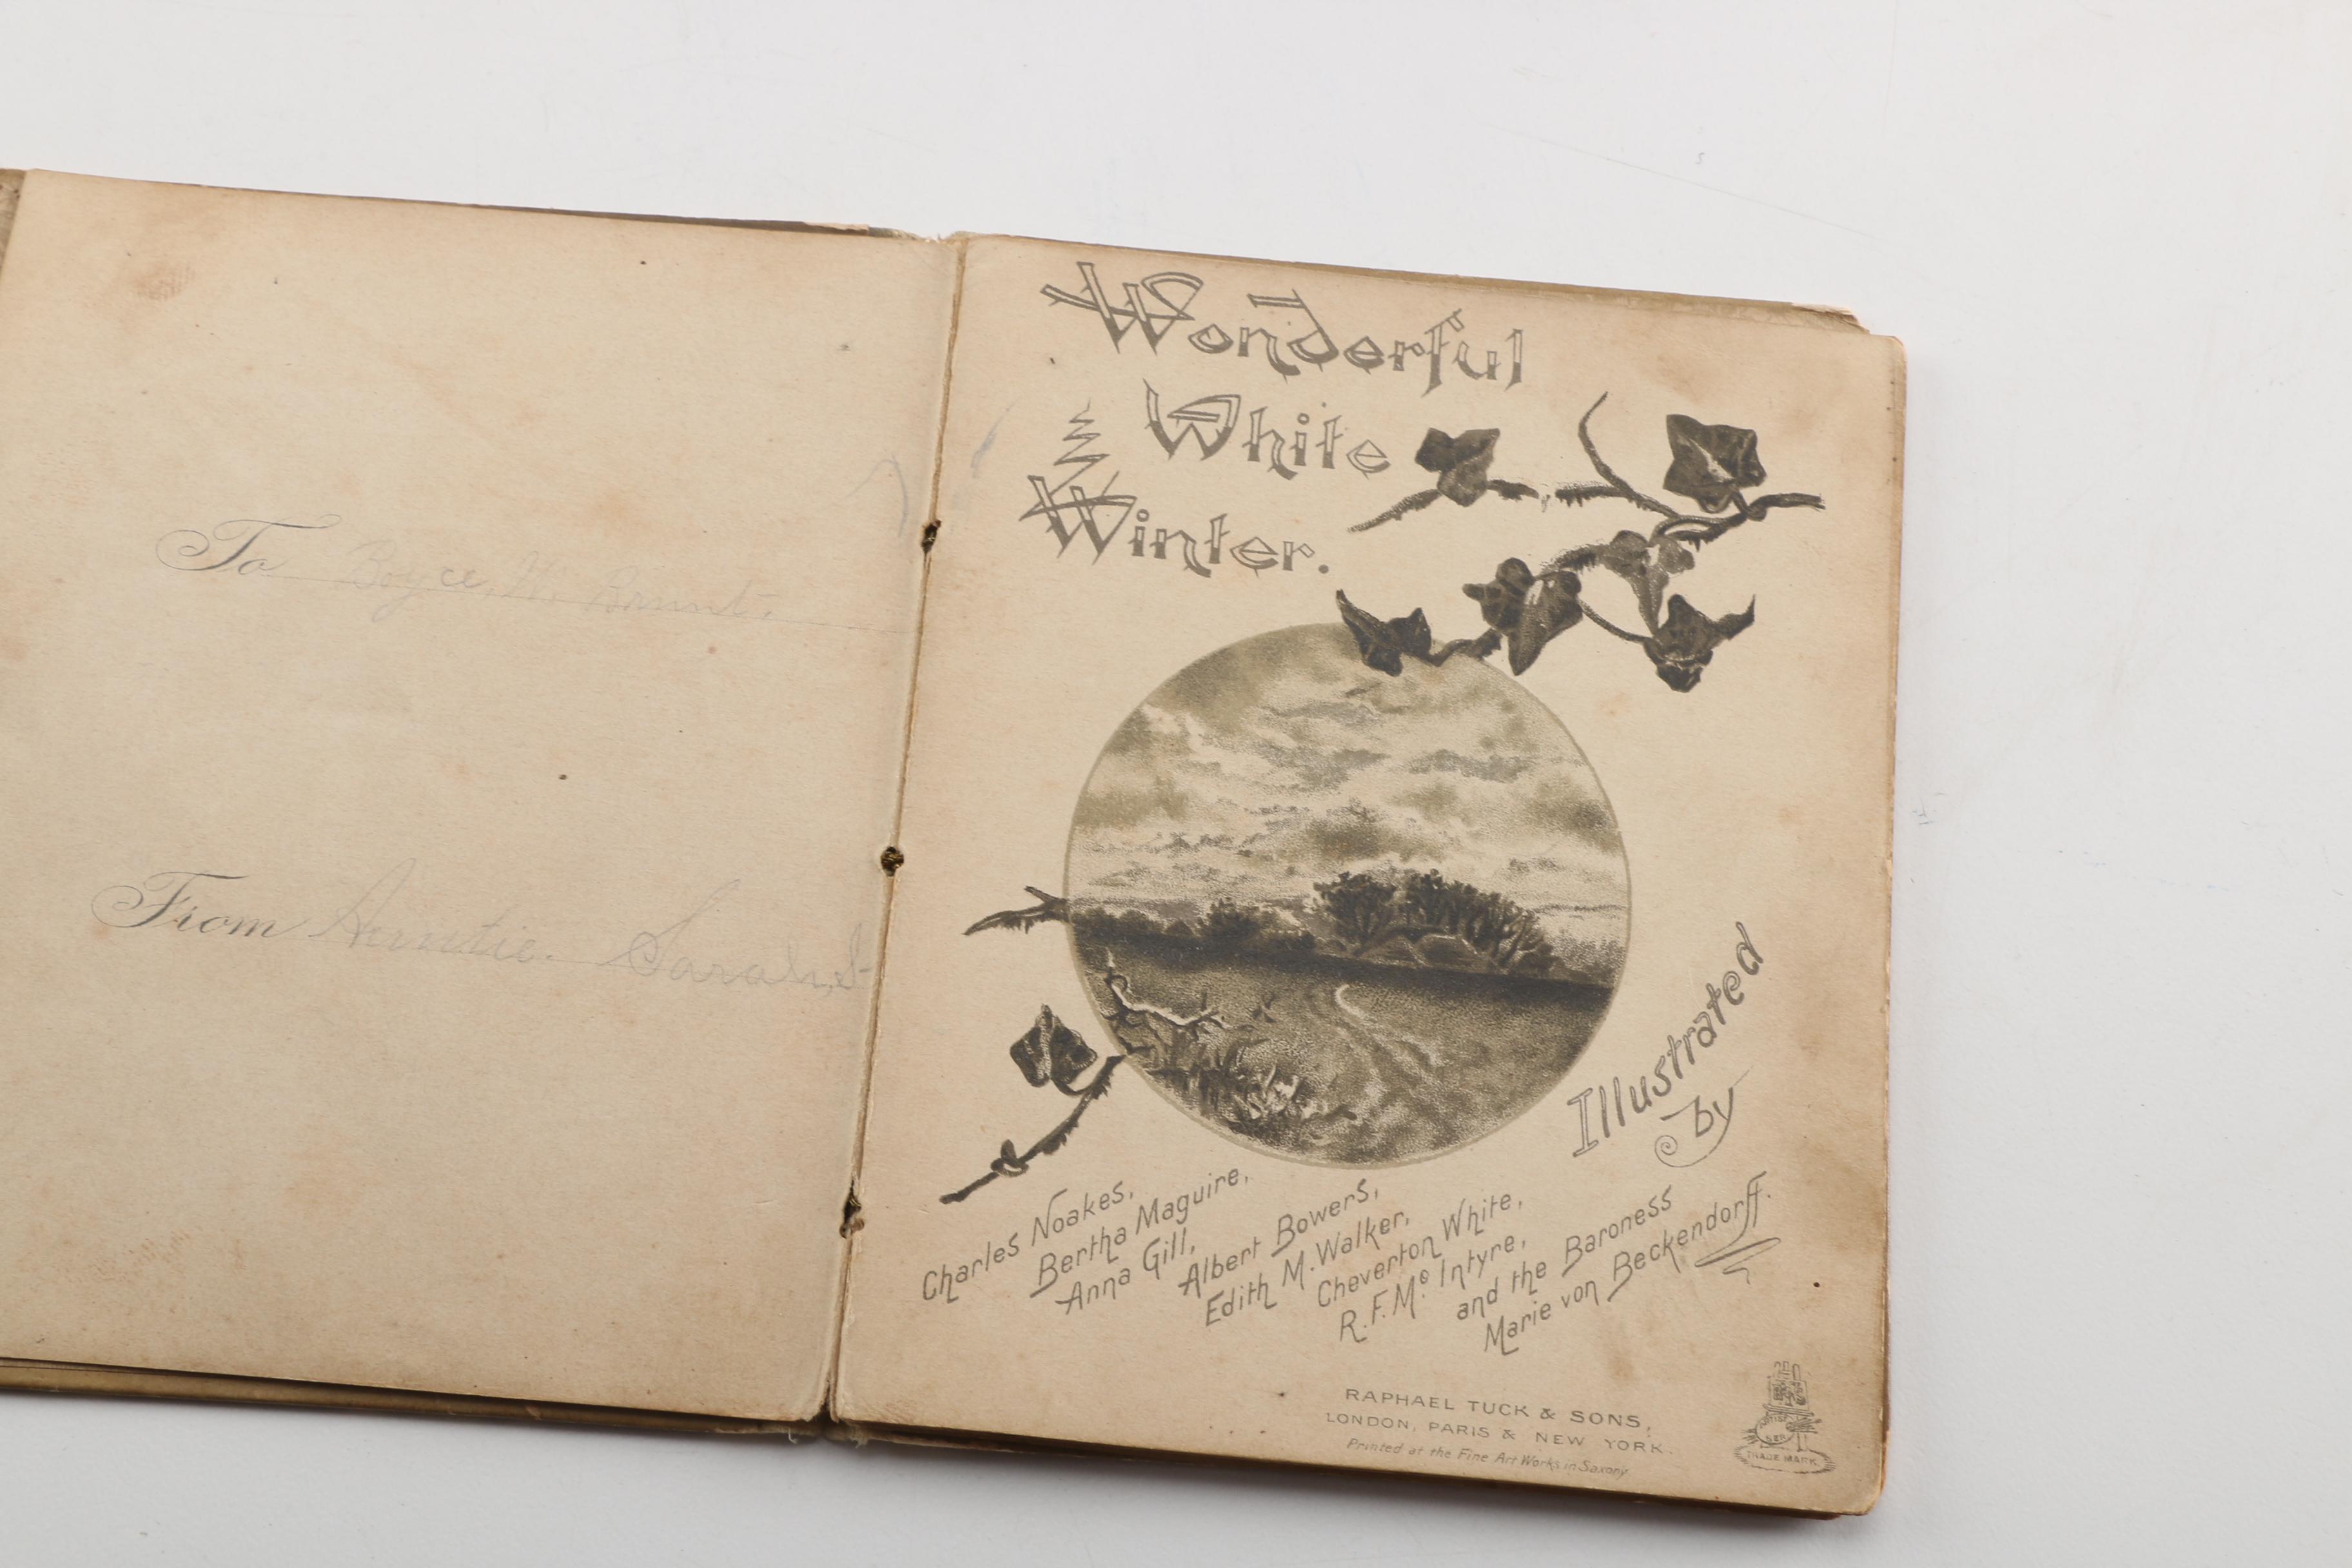 To Boyce. W. Brunt.
From Auntie. Sarah.
Wonderful
White
Winter.
Illustrated
by
Charles Noakes,
Bertha Maguire,
Anna Gill,
Albert Bowers,
Edith M. Walker,
Cheverton White,
R. F. Mc Intyre,
and the Baroness
Marie von Beckendorff.
RAPHAEL TUCK & SONS,
LONDON, PARIS & NEW YORK.
Printed at the Fine Art Works in Saxony
TRADE MARK